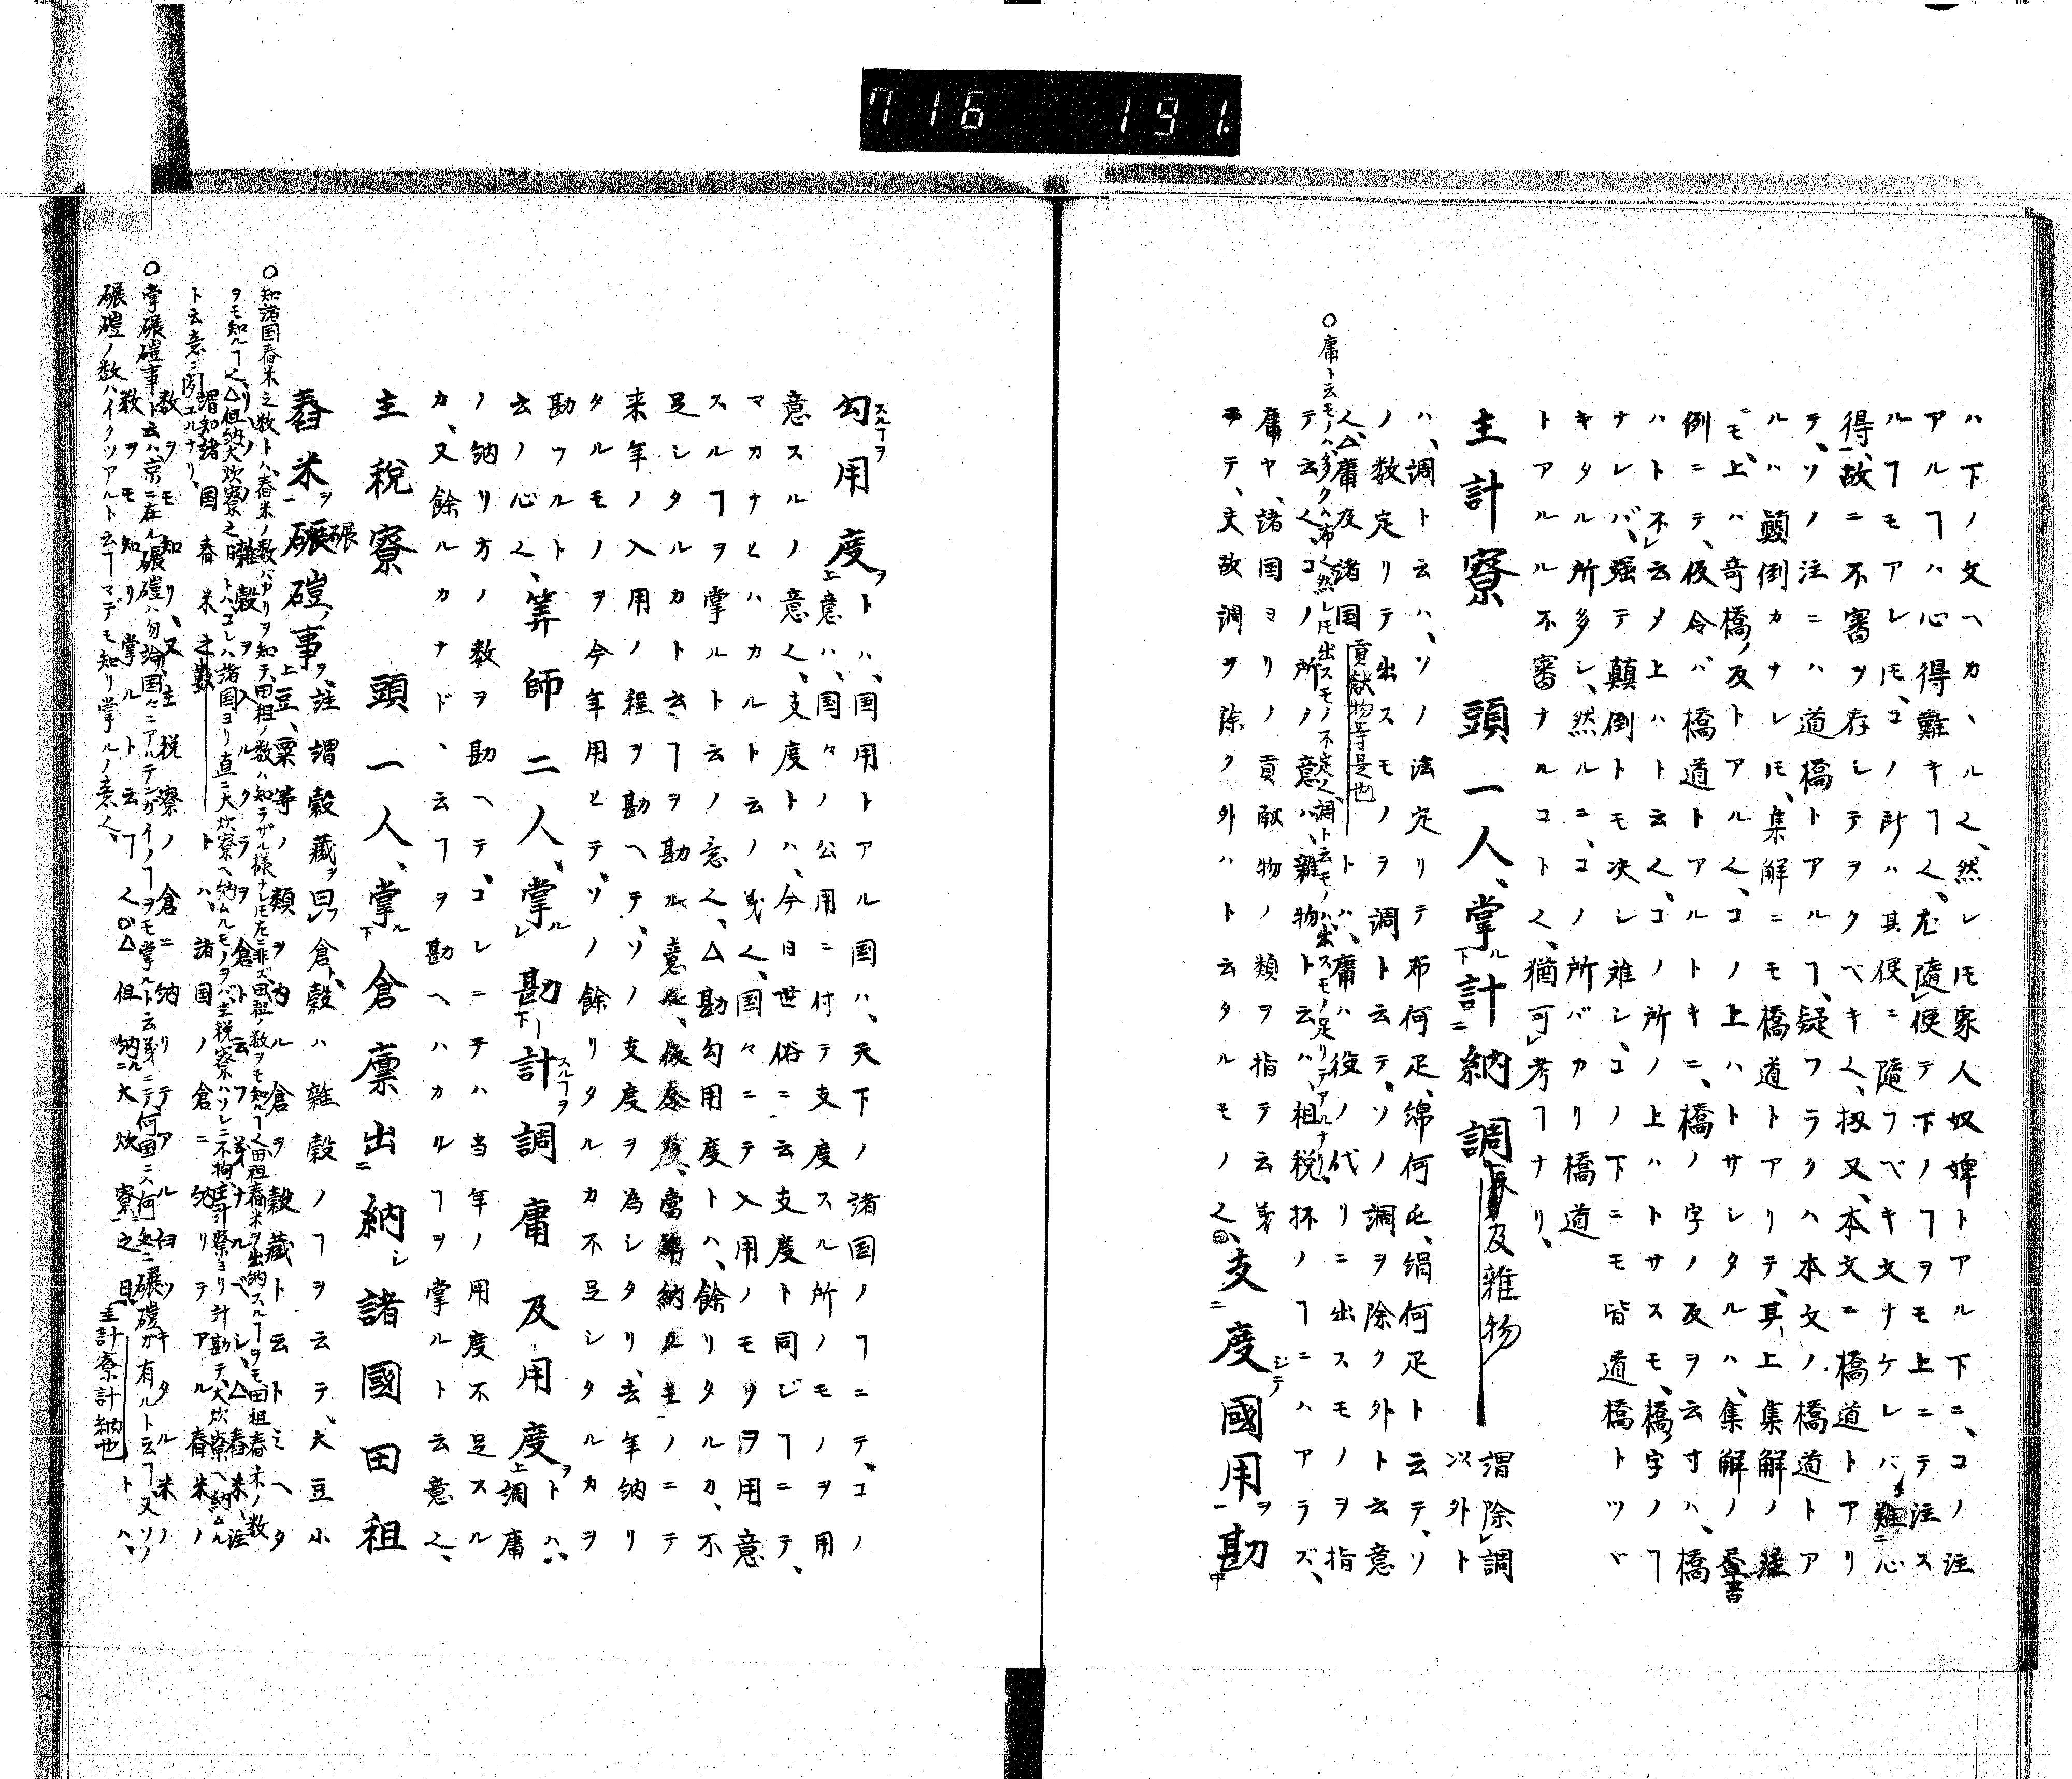 716 191.
ハ下ノ文ヘカヽルく、然レ𪜈家人奴婢トアル下ニ、コノ注
アルヿハ心得難キヿく、左隨便テ下ノヿヲモ上ニテ注ス
ルヿモアレ𪜈、コノ所ハ其便ニ隨フベキ文ナケレバ、難心
得、故ニ不審ヲ存シテヲクベキく、扨又、本文ニ橋道トアリ
テ、ソノ注ニハ道橋トアルヿ、疑フラクハ本文ノ橋道トア
ルハ顛倒カナレ𪜈、集解ニモ橋道トアリテ、其上集解ノ註
ニモ、上ハ奇橋ノ反トアルく、コノ上ハトサシタルハ、集解ノ
例ニテ、仮令バ橋道トアルトキニ、橋ノ字ノ反ヲ云寸ハ、橋
ハト不云メ上ハト云く、コノ所ノ上ハトサスモ、橋ノ字ノヿ
ナレバ、強テ顛倒トモ决シ难シ、コノ下ニモ皆道橋トツヾ
キタル所多シ、然ルニ、コノ所バカリ橋道
トアルハ不審ナルコトく、猶可考ヿナリ、
主計寮 頭一人、掌計納調及雜物 謂除調以外ト
ハ、調ト云ハ、ソノ法定リテ布何疋、綿何屯、絹何疋ト云テ、ソ
ノ数定リテ出スモノヲ調ト云テ、ソノ調ヲ除ク外ト云意
く、△庸及諸国貢献物等是也トハ、庸ハ役ノ代リニ出スモノヲ指
テ云く、コノ所ノ意ハ、雜物ト云ハ、祖税抔ノヿニハアラズ、
庸ヤ、諸国ヨリノ貢献物ノ類ヲ指テ云義
く、支度國用勘
○庸ト云モノハ、多クハ布く、然レ𪜈出スモノ不定く、調ト云モノハ、出スモノ足リテアルナリ、
勾用度ヲトハ、国用トアル国ハ、天下ノ諸国ノヿニテ、コノ
意ハ、国々ノ公用ニ付テ支度スル所ノモノヲ用
意スルノ意く、支度トハ、今日世俗ニ云支度ト同ジヿニテ、
マカナヒハカルト云ノ義く、国々ニテ入用ノモノヲ用意
スルヿヲ掌ルト云ノ意く、△勘勾用度トハ、餘リタルカ、不
足シタルカト云ヿヲ勘ル意く、仮令ハ當年納タルモノニテ
来年ノ入用ノ程ヲ勘ヘテ、ソノ支度ヲ為シタリ、去年納リ
タルモノヲ今年用ヒテ、ソノ餘リタルカ不足シタルカヲ
勘フルト
云ノ心く、算師二人、掌勘計調庸及用度ヲトハ、調庸
ノ納リ方ノ数ヲ勘ヘテ、コレニテハ当年ノ用度不足スル
カ、又餘ルカナド、云ヿヲ勘ヘハカルヿヲ掌ルト云意く、
主税寮 頭一人、掌倉廩出納、諸國田祖
舂米、碾磑事、註謂穀藏曰倉トハ、穀ハ雜穀ノヿヲ云テ、大豆小
豆、粟等ノ類ヲ内ル倉ヲ穀藏ト云トミヘタ
謂知諸国舂米之數トハ、諸国ノ倉ニ納リテアル舂米ノ
数ヲモ知リ、又主税寮ノ倉ニ納リテアル臼ツキタル米ノ
数ヲモ知リ掌ルト云ヿく、△但納大炊寮之日、主計寮計納也トハ、
○知諸国舂米之数トハ、舂米ノ数バカリヲ知テ、田祖ノ数ハ知ラザル様ナレ𪜈左ニ非ズ、田祖ノ数ヲモ知ルヿく、田祖舂米ヲ出納スルヿヲモ、田祖舂米ノ数
ヲモ知ルヿく、△但納大炊寮之日トハ、コレハ諸国ヨリ直ニ大炊寮ヘ納ムルモノヲバ、主税寮ハソレニ不拘、主計寮ヨリ計勘テ、大炊寮ヘ納ムル
ト云意ニ聞エルナリ、
○掌碾磑事ト云ハ、京ニ在ル碾磑ハ勿論、国々ニアルテンガイノヿヲモ掌ルト云義ニテ、何国ニハ何処ニ碾磑ガ有ルト云ヿ、又ソノ
碾磑ノ数ハイクツアルト云ヿマデモ知リ掌ルノ意く、